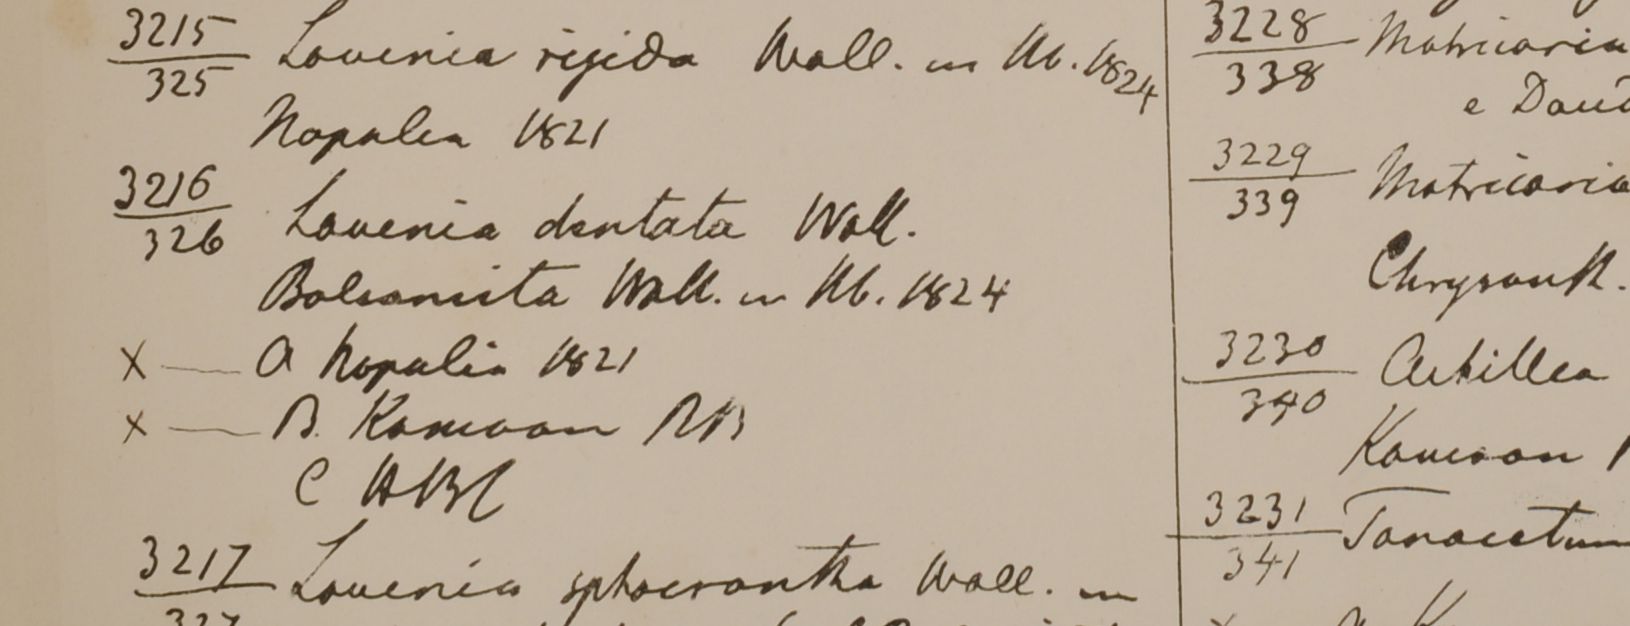 3215
325
Lavenia rigida Wall. in hb. 1824
Napalia 1821
3216
326
Lavenia dentata Wall.
Balsamita Wall. in hb. 1824
x — A Napalia 1821
x — B. Kamaon RB
C HBC
3217
327
Lavenia sphaerantha Wall. in
3228
338
Matricaria
e
3229
339
Matricaria
Chrysanth.
3230
340
Achillea
Kamaon
3231
341
Tanacetum